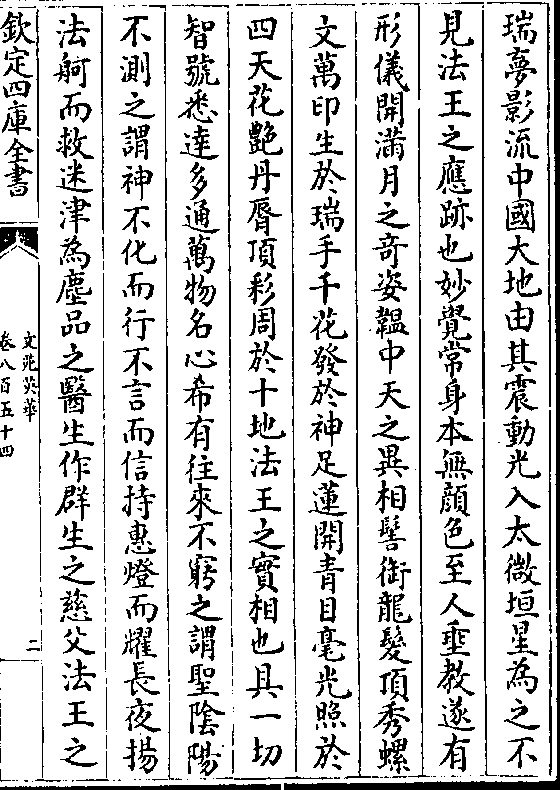 瑞夢影流中國大地由其震動光入太微垣星為之不
見法王之應跡也妙覺常身本無顔色至人垂教遂有
形儀開滿月之奇姿韞中天之異相髻銜龍髮頂秀螺
文萬印生於瑞手千花發於神足蓮開青目毫光照於
四天花艷丹脣頂彩周於十地法王之實相也具一切
智號悉達多通萬物名心希有往來不窮之謂聖陰陽
不測之謂神不化而行不言而信持惠燈而耀長夜揚
法舸而救迷津為塵品之醫生作群生之慈父法王之
欽定四庫全書
文苑英華
卷八百五十四
二